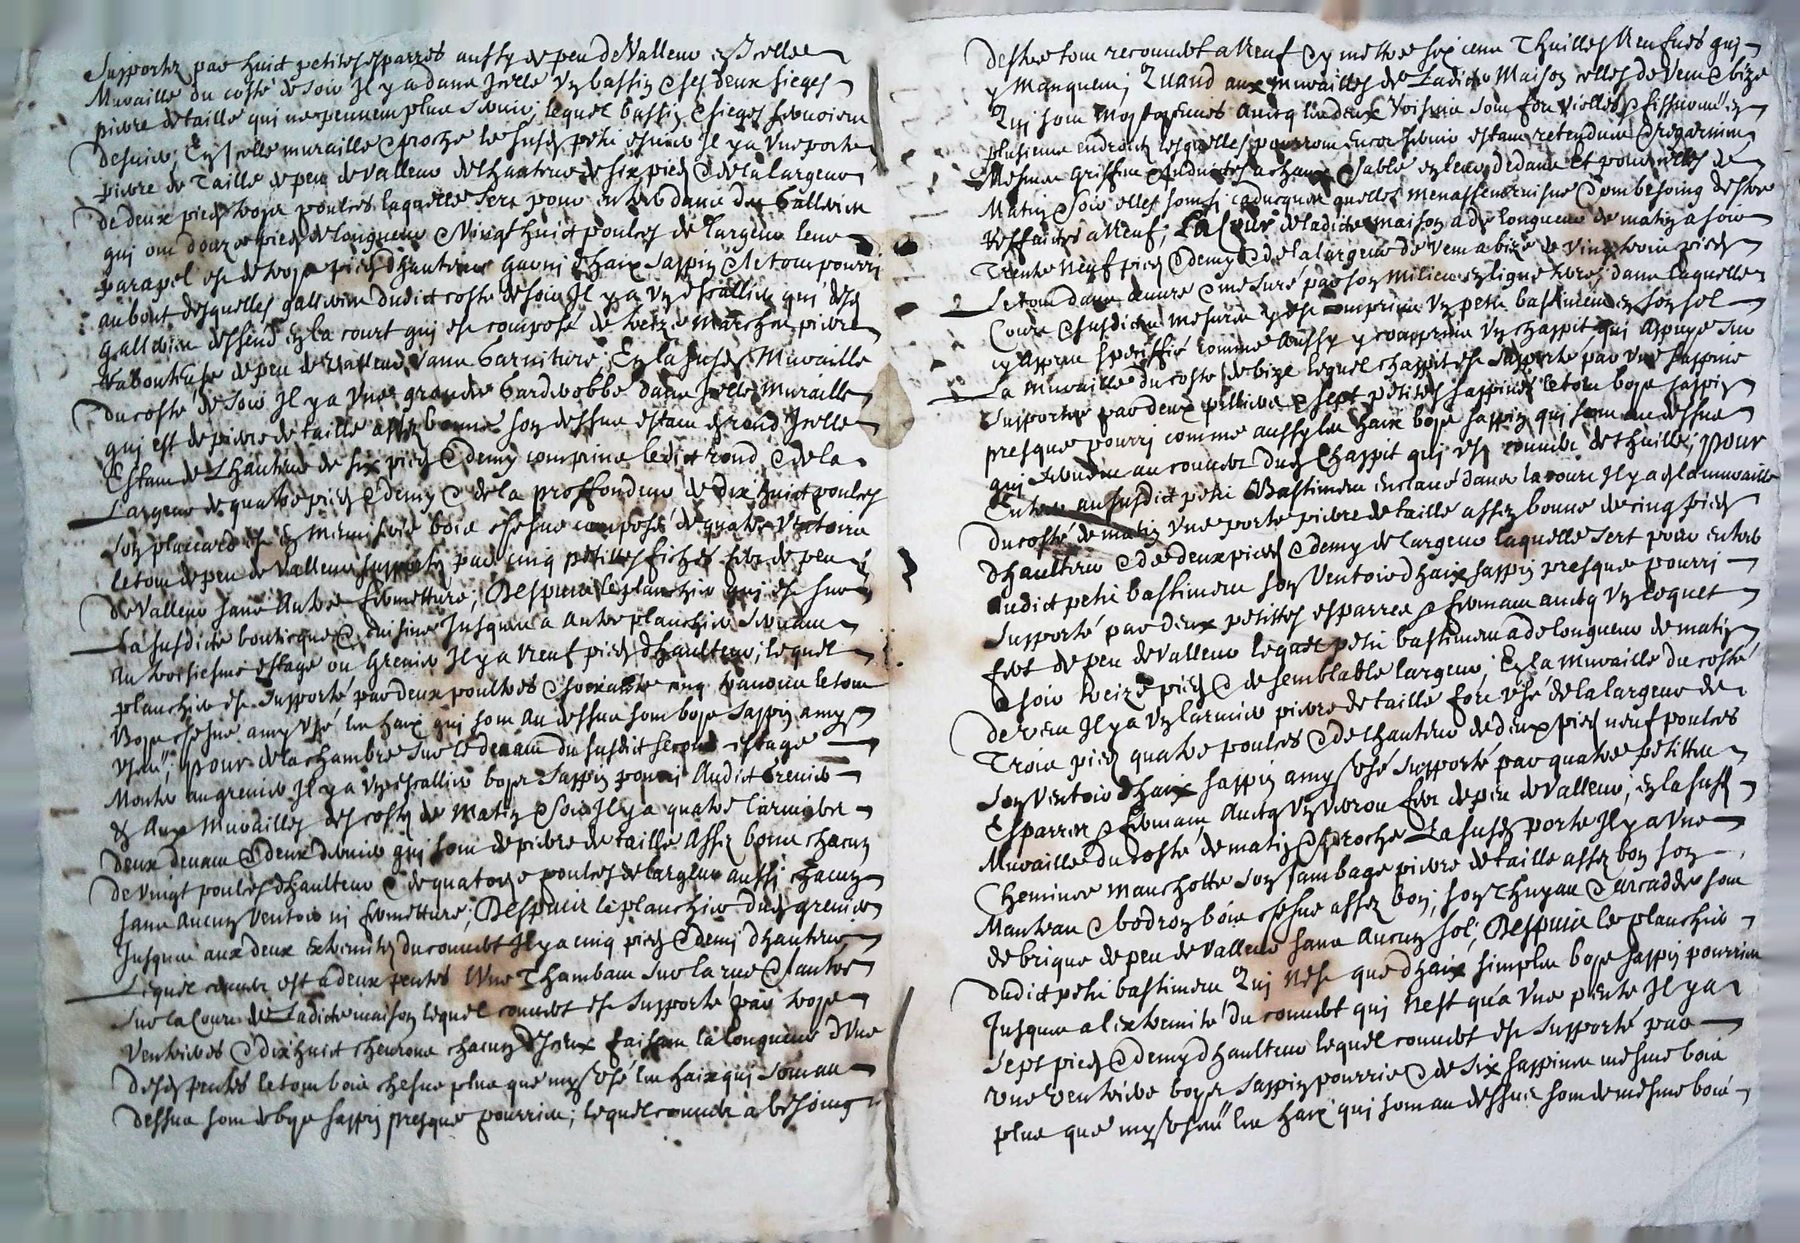 Supportez par huict petites esparres aussy de peu de valleur en Icelle
Muraille du costé de soir Il y a dans Icelle un bassin & ses deux sieges
pierre de taille qui ne peuvent plus servir, lequel bassin & sieges
En Icelle muraille & proche le susd petit Il y a une porte
pierre de Taille de peu de valleur de lhauteur de six pieds & de la largeur
de deux pieds trois poulces laquelle sert pour entrer dans
qui ont douze pieds de longueur & vingt huict poulces de largeur leur
parapel est de trois pieds dhauteur garni dhaix sappin & le tout pourri
au bout desquelles galleries dudict costé de soir Il y a un escallier qui desd
galleries dessend en la court qui est composé de treize marches pierre
de peu de valleur sans garniture, En la susd Muraille
du costé de soir Il y a une grande Garderobbe dans Icelle muraille
qui est de pierre de taille assez bonne son dessus estant en rond Icelle
Estant de Lhauteur de six pieds & demy comprins ledict rond, & de la
Largeur de quatre pieds & demy & de la proffondeur de dix huict poulces
Son placard est en Menuiserie bois chesne composé de quatre ventoirs
le tout de peu de valleur supporté par cinq petites fiches fer de peu
de valleur sans Autre fermetture, Despuis le planchier qui est sur
La susdicte boutique & cuisine Jusques a Autre planchier servant
Au troisiesme estage ou Grenier Il y a neuf pieds dhaulteur, lequel
planchier est supporté par deux poultres & soixante cinq travons le tout
Boys chesne amy usé les haix qui sont au dessus sont boys sappin amy
usés, pour de la chambre sur le devant du susdict second estage
Monter au grenier Il y a un escallier boys sappin pourri Audict Grenier
& Aux Murailles des costés de Matin & Soir Il y a quatre larmiers
deux devant & deux derrier qui sont de pierre de taille Assez bonne chacun
de vingt poulces dhaulteur & de quatorze poulces de largeur aussi chacun
sans Aucun ventoir ni fermetture, Despuis le planchier dud grenier
Jusques aux deux extremités du couvert Il y a cinq pieds & demi dhauteur
Lequel couvert est a deux pentes Une Thombant sur la rue & lautre
sur la Court de Ladicte maison lequel couvert est supporté par trois
Ventrieres & dix huict chevrons chacun faisant la longueur dune
desd pentes le tout bois chesne plus que my usé les haix qui sont au
dessus sont de boys sappin presque pourries, lequel couvert a besoing
destre tout recouvert a Neuf & y mettre six cent Thuilles Neufves qui
y Manquent; Quand aux murailles de Ladicte Maison celles de Vent & bize
Qui sont Moytoyennes Avecq les deux Voisins sont fort vielles & fissurées en
plusieurs endroicts lesquelles pourront Encor servir estant
a chaux & sable en leur dedans Et pour celles de
Matin & Soir elles sont si caducques quelles menassent ruisne & ont besoing destre
Reffaictes a Neuf; La Cour de ladicte maison a de longueur de matin a soir
Trente Neuf pieds & demy & de la largeur de Vent a bize de vingt trois pieds
Le tout dans œuvre & mesuré par son milieu en ligne dans laquelle
Cour & susdicte mesure y est comprins un petit bastiment en son sol
cy Appres speciffié comme Aussy y comprins un chappit qui appuye sur
La Muraille du costé de bize lequel chappit est supporté par une sappine
supportée par deux pilliers & sept petites sappines le tout boys sappin
presque pourri comme aussy les haix boys sappin qui sont au dessus
qui servent au couvert dud Chappit qui est couvert de thuilles; pour
Entrer au susdict petit Bastiment enclavé dans la court Il y a en la muraille
du costé de matin une porte pierre de taille assez bonne de cinq pieds
dhaulteur & de deux pieds & demy de largeur laquelle sert pour entrer
audict petit bastiment son ventoir dhaix sappin presque pourri
supporté par deux petites esparres & fermant avecq un loquet
fer de peu de valleur lequel petit bastiment a de longueur de matin
a soir treize pieds & de semblable largeur; En la Muraille du costé
de vent Il y a un larmier pierre de taille fort usé de la largeur de
Trois pieds quatre poulces & de lhauteur de deux pieds neuf poulces
son ventoir dhaix sappin amy usé supporté par quatre petittes
Esparres & fermant Avecq un verrou fer de peu de valleur; en la susd
Muraille du costé de matin & proche La susd porte Il y a une
Cheminee manchotte son Jambage pierre de taille assez bon son
Manteau & bois chesne assez bon, son Thuyau & arcadde sont
de brique de peu de valleur sans Aucun sol; Despuis le planchier
dudict petit bastiment Qui nest que dhaix simples boys sappin pourries
Jusques a lextremité du couvert qui nest qua une pente Il y a
sept pieds & demy dhaulteur lequel couvert est supporté par
une ventriere boys sappin pourrie & de six sappines mesme bois
plus que my usées les haix qui sont au dessus sont de mesme bois